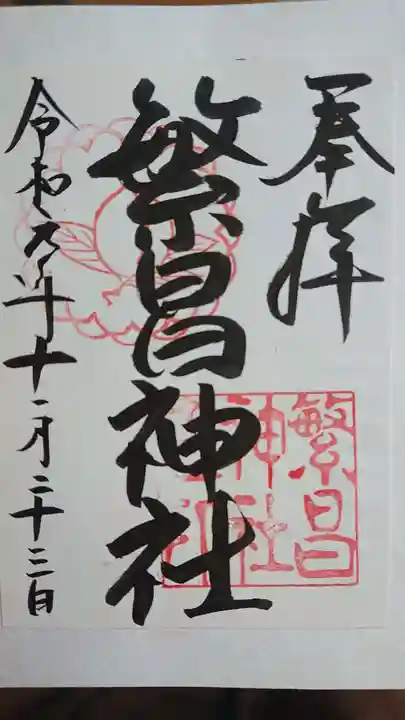 奉拝
繁昌神社
令和元年十二月二十三日
繁昌
神社